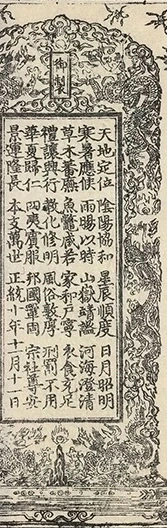 御製
天地定位 陰陽協和 星辰順度 日月昭明
寒暑應候 雨暘以時 山嶽靖謐 河海澄清
草木蕃廡 魚龍咸若 家和戶寧 衣食充足
禮讓興行 教化修明 風俗敦厚 刑罰不用
華夏歸仁 四夷賓服 邦國鞏固 宗社尊安
景運隆長 本支萬世 正統十年十一月十一日